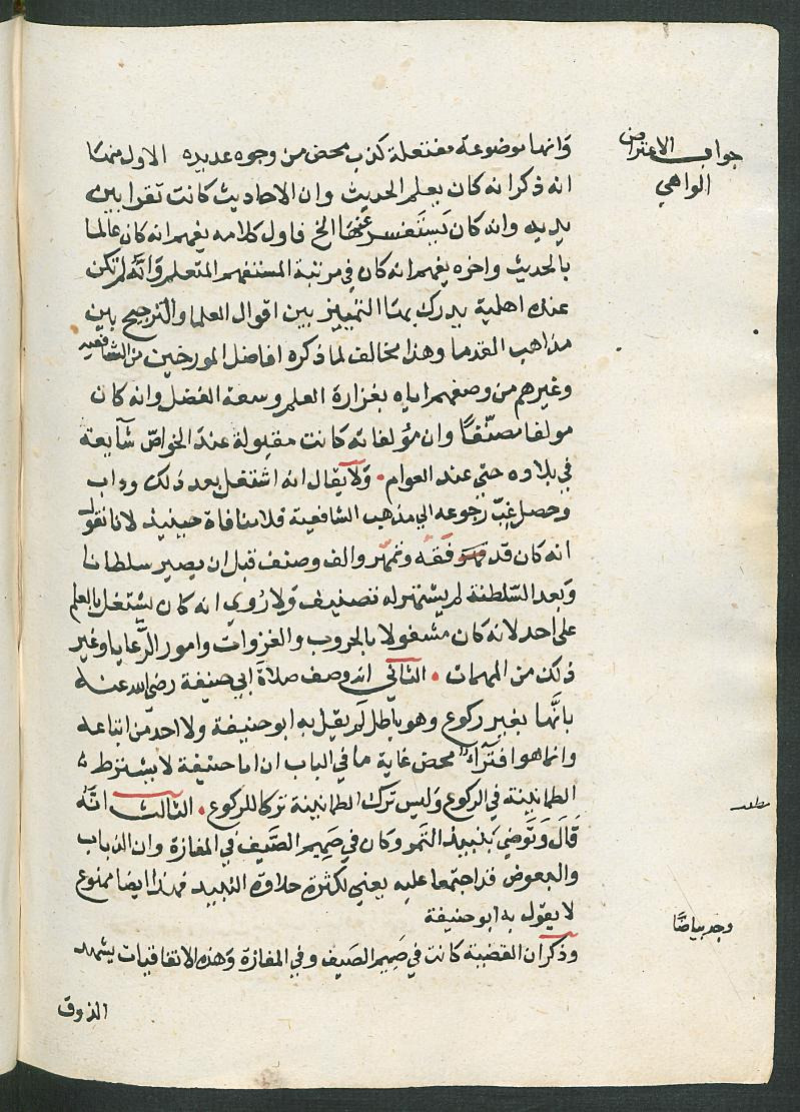 جواب الاعتراض
الواهي
وانها موضوعة مفتعلة كذب محض من وجوه عديده الاول منها
انه ذكر انه كان يعلم الحديث وان الاحاديث كانت تقرا بين
يديه وانه كان يَستَفسر عنها الخ فاول كلامه يفهم انه كان عالما
بالحديث واخره يفهم انه كان في مرتبة المستفهم المتعلم وَانَّه لم تكن
عنده اهلية يدرك بها التمييز بين اقوال العلما والترجيح بين
مذاهب القدما وهذا مخالف لما ذكره افاضل المورخين من الشافعيه
وغيرهم من وصفهم اياه بغزارة العلم وسعة الفضل وانه كان
مولفا مصنّفًا وان مؤلفاته كانت مقبولة عند الخواصّ شآيعة
في بلاده حتي عند العوام. وَلا يقال انه اشتغل بعد ذلك وداب
وحصل غبّ رجوعه الي مذهب الشافعية فلا منافاة حينيذ لانا نقول
انه كان قد فقه وتمهّر والف وصنف قبل ان يصير سلطانا
وَبعد السّلطنة لم يشتهر له تصنيف وَلا رُوي انه كان يشتغل بالعلم
علي احد لانه كان مشغولا بالحروب والغزوات وامور الرّعايا وغير
ذلك من المهمات. الثاني انه وصف صلاة ابي حنيفة رضي الله عنه
بانَّها بغير ركوع وهو باطل لَم يقيل به ابو حنيفة ولا احد من اتباعه
وانما هو افترآء محض غاية ما في الباب ان ابا حنيفة لا يشترط
الطمانينة في الركوع وَليس ترك الطمانينة تركا للركوع. الثالث انَّهُ
قَالَ وَتَوضي بنبيذ التمر وكان في صَمِيم الصَّيف في المفازة وان الذباب
والبعوض قد اجتمعا عليه يعني لكثرة حلاوة النبيد فهذا ايضا ممنوع
لا يقول به ابو حنيفة
وذكر ان القضية كانت في صَمِيم الصَيف وفي المفازة وَهذه الاتفاقيات يشهد
مطلب
وجد بياضًا
الذوق